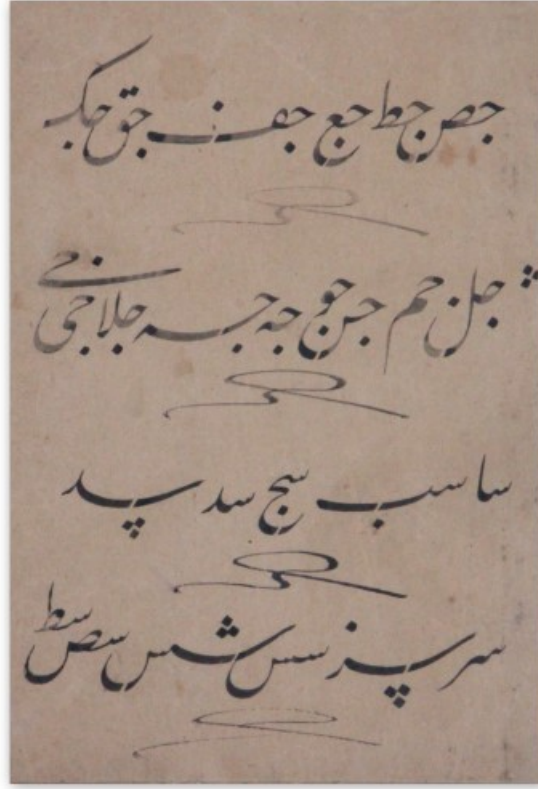 جص جط جع جف جق جک
جل جم جن جو جه جه جلا جی جے
سا سب سج سد سد
سر سر سس سش سص سط